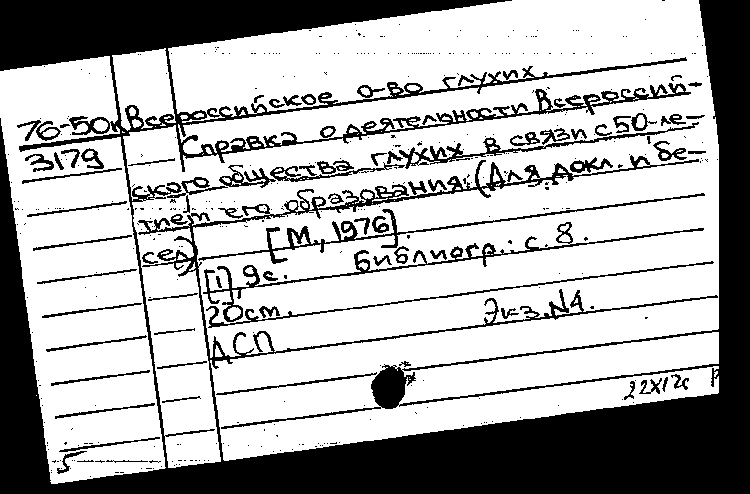 76-50к Всероссийское о-во глухих.
3179 Справка о деятельности Всероссий-
ского общества глухих в связи с 50-ле-
тием его образования. (Для докл. и бе-
сед). [М., 1976].
[1], 9с. Библиогр.: с. 8.
20см. Экз. №4.
ДСП.
5